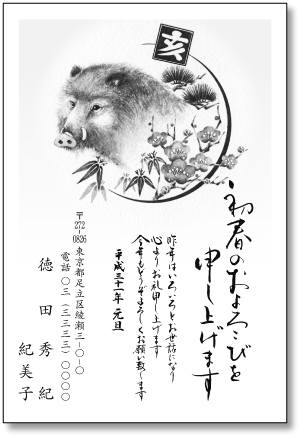 亥
初春のおよろこびを
申し上げます
昨年はいろいろとお世話になり
心よりお礼申し上げます
今年もどうぞよろしくお願い致します
平成三十一年 元旦
〒272-0826 東京都足立区綾瀬三-〇-〇
電話 〇三(三三三三)〇〇〇〇
徳田秀紀
紀美子